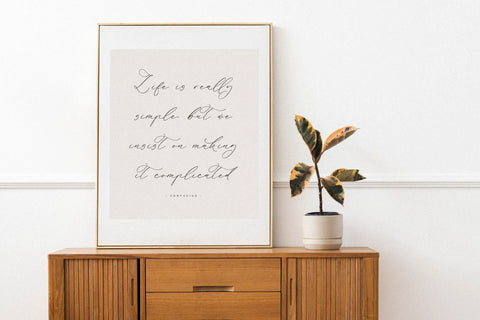 Life is really
simple, but we
insist on making
it complicated
- CONFUCIUS -